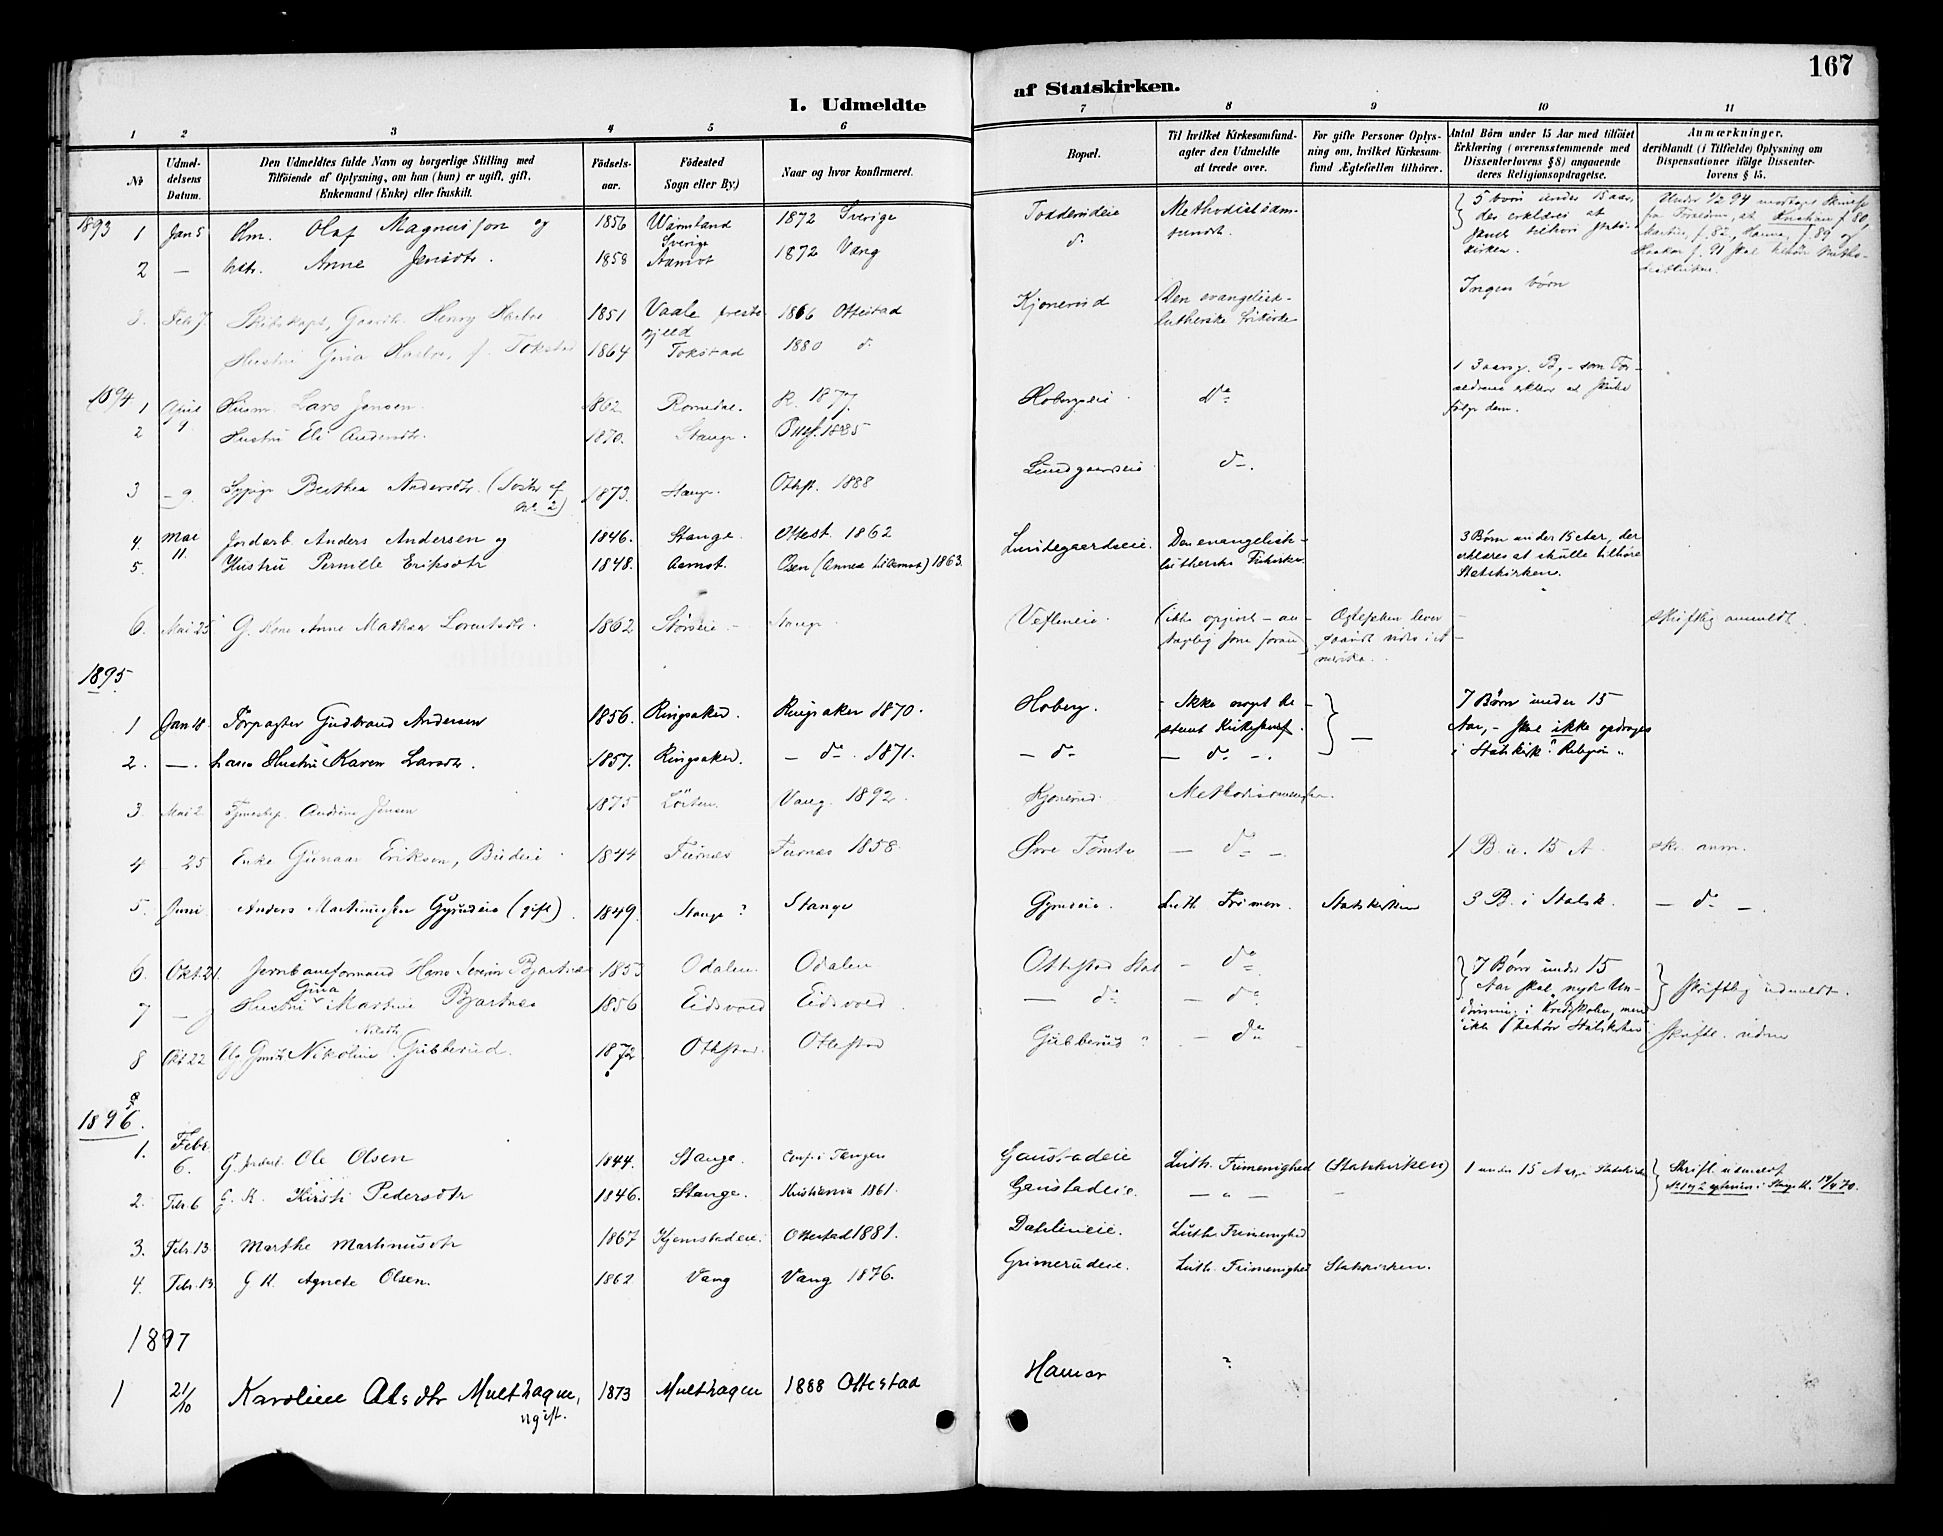 167
I. Udmeldte af Statskirken.
1 2 3 4 5 6 7 8 9 10 11
No
Udmeldelsens Datum.
Den Udmeldtes fulde Navn og borgerlige Stilling med
Tilföiende af Oplysning, om han (hun) er ugift, gift,
Enkemand (Enke) eller fraskilt.
Födselsaar.
Födested
Sogn eller By.)
Naar og hvor konfirmeret.
Bopæl.
Til hvilket Kirkesamfund-
agter den Udmeldte
at træde over.
For gifte Personer Oplys-
ning om, hvilket Kirkesam-
fund Ægtefællen tilhörer.
Antal Börn under 15 Aar med tilföiet
Erklæring (overensstemmende med
Dissenterlovens § 8) angaaende
deres Religionsopdragelse.
Anmærkninger,
deriblandt (i Tilfælde) Oplysning om
Dispensationer ifölge Dissenter-
lovens § 15.
1893
1 Jan 5 Hm. Olaf Magnusson og 1856 Wärmland Sverige 1872 Sverige Methodistsam-
fundet.
5 børn under 15 aar,
der erklæres at
skulle tilhøre Stats-
kirken.
2 — hstr. Anne Jensdtr. 1858 Aamot 1872 Vang d.
3. Febr 7 Henry 1851 Vaale præste-
gjeld 1866 Ottestad Kjonerud Den evangelisk-
lutherske frikirke Ingen børn
Hustru Gina 1864 Tokstad 1880 d.
1894
1 April 9 Husm. Lars Jensen. 1862 Romedal. R. 1877. Hobergseie Do
1 3 aarsg. B. - som For-
ældrene erklære at skulle
følge dem.
2 Hustru Eli Andersdtr. 1870. Stange. 1885
3 — 9. Berthea Andersdtr. (Søster af No 2) 1873. Stange. Ottest. 1888 Lundgaardseie do.
4. Mai 11. Jordarb. Anders Andersen og 1846. Stange. Ottest. 1862 Lundegaardseie. Den evangelisk-
lutherske Frikirke.
3 Børn under 15 Aar, der
erklæres at skulle tilhøre
Statskirken.
5. Hustru Pernille Eriksdtr 1848. Aamot. Osen (Annex til Aamot) 1863.
6. Mai 25 G. Kone Anne Mathea Lorentsdtr. 1862 Stange (ikke opgivet - an-
tagelig som foran) Ægtefellen lever
i A-
merika. skriftlig anmeldt.
1895
1 Jan 18 Forpagter Gudbrand Andersen 1856. Ringsaker. Ringsaker 1870. Hoberg. - Ikke
7 Børn under 15
Aar, - skal ikke opdrages
i Statskirk.
2. —. hans Hustru Karen Larsdtr. 1857. Ringsaker. — do — 1871. — do — — do —.
3. Mai 2 Andrine Jensen 1875 Löiten Vang. 1892. Kjonerud.
4 25 Enke Gunnar Eriksen, 1844 Furnæs Furnæs 1858. — do — 1 B. u. 15 A. skr. anm.
5. Juni Anders Martinussen (gift) 1849. Stange? Stange Luth. Frimen. Statskirken 3 B. i Statsk. — do —.
6. Okt. 21. Jernbaneformand Hans Severin Bjartnæs 1853 Odalen. Odalen Ottestad Stat. — do
7 Børn under 15
Aar skal nyde Un-
i Kredsskolen, men
ikke tilhøre Statskirken
skriftlig udmeldt.
7 — Hustru Gina Martine Bjartnæs 1856 Eidsvold Eidsvold — do — do
8 Okt 22 Nikoline Nilsdtr Gubberud. 1872 Ottestad. Ottestad Gubberud — do
1896.
1. Febr. 6. G. Jordarb. Ole Olsen 1844. Stange. Conf. i Tangen Gaustadeie Luth. Frimenighed (Statskirken) 1 under 15 Aar, i Statskirken Skriftl. udmeldt
2. Febr. 6 G. K. Kirsti Pedersdtr 1846. Stange. Kristiania 1861. Gaustadeie. — " —
3. Febr. 13 Marthe Martinusdtr 1867 Kjemstadeie. Ottestad 1881. Luth. Frimenighed
4. Febr. 13. G. K. Agnete Olsen. 1862 Vang Vang 1876. Grimerudeie. Luth. Frimenighed Statskirken.
1897
1 21/10 Karoline Olsdtr Multhagen, ugift. 1873 Multhagen 1888 Ottestad Hamar ?